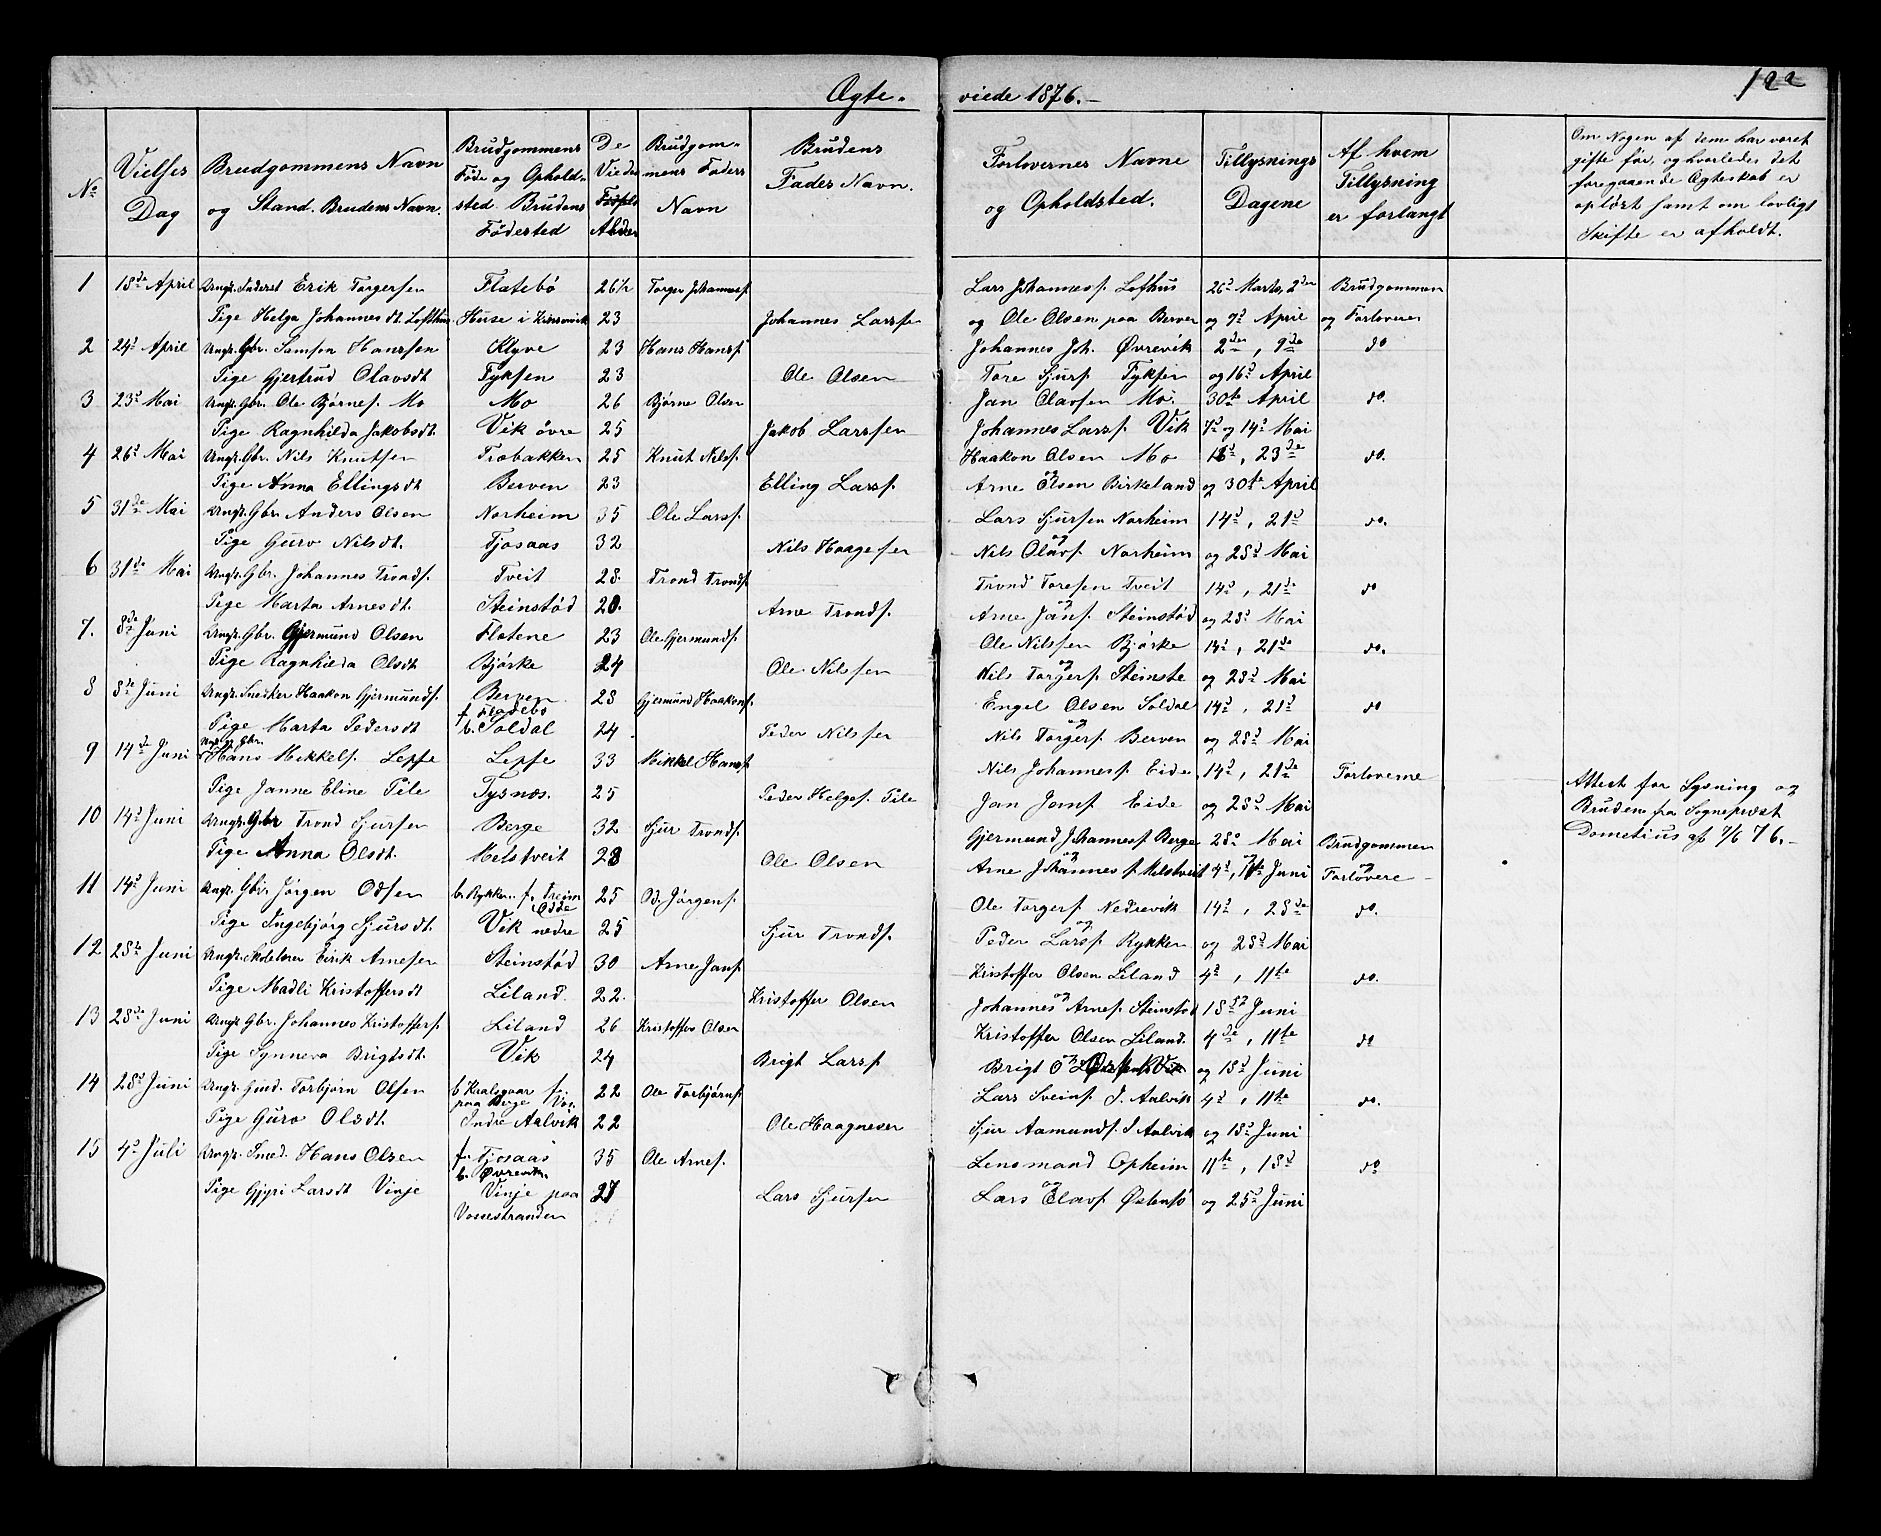 Ægte-
viede 1876.-
122
No
Vielses Dag
Brudgommens Navn og Stand. Brudens Navn.
Brudgommens Føde og Opholdssted. Brudens Fødested
De Viedes Alder
Brudgommens Faders Navn
Brudens Fader Navn.
Forlovernes Navne og Opholdsted.
Tillysnings Dagene
Af hvem Tillysning er forlangt
Om Nogen af dem har været gifte før, og hvorledes det foregaaende Ægteskab er opløst samt om lovligt Skifte er afholdt.
1 18de April Ungk. Inderst Erik Torgersen Flatebø 26½ Torger Johanness. Lars Johanness. Lofthus 26d Marts, 2den Brudgommen
Pige Helga Johannesdt. Lofthus Huse i Kinservik 23 Johannes Larssen og Ole Olsen paa Berven og 7d April og Forlovere
2 24d April Ungk. Gbr. Samson Hanssen Klyve 23 Hans Hanss. Johannes Joh. Øvrevik 2den, 9de do
Pige Gjertrud Olavsdt Fyksen 23 Ole Olsen Tore Sjurs. Fyksen og 16d April
3 23d Mai Ungk. Gbr. Ole Bjørnes. Mo Mo 26 Bjørne Olsen Jan Olavsen Mo. 30te April do.
Pige Ragnhilda Jakobsdt. Vik øvre 25 Jakob Larssen Johannes Larss. Vik 7d og 14d Mai
4 26d Mai Ungk. Gbr. Nils Knutsen Træbakken 25 Knut Nilss. Haakon Olsen Mo 16d, 23de do.
Pige Anna Ellingsdt Berven 23 Elling Larss. Arne Olsen Birkeland og 30te April
5 31de Mai Ungk. Gbr. Anders Olsen Norheim 35 Ole Larss. Lars Sjursen Norheim 14d, 21d do.
Pige Guro Nilsdt. Tjosaas 32 Nils Haagesen og Nils Olavs. Norheim og 28d Mai
6 31de Mai Ungk. Gbr. Johannes Tronds. Tveit 28. Trond Tronds. Trond Toresen Tveit 14d, 21de do
Pige Marta Arnesdt. Steinstød 20. Arne Tronds. og Arne Jans. Steinstød og 28d Mai
7. 8de Juni Ungk. Gbr. Gjermund Olsen Flotene 23 Ole Gjermunds. Ole Nilssen Bjørke 14d, 21de do.
Pige Ragnhilda Olsdt Bjørke 24 Ole Nilssen og Nils Torgers. Steinstø og 28d Mai
8 8de Juni Ungk. Snedker Haakon Gjermunds. Berven f. 28 Gjermund Haakons. Engel Olsen Soldal 14d, 21d do
Pige Marta Pedersdt b. Soldal 24 Peder Nilssen og Nils Torgers. Berven og 28d Mai
9 14de Juni Ungk. Gbr. Hans Mikkels. Lepse Lepse 33 Mikkel Hanss. Nils Johanness. Eide 14d, 21de Forloverne
Pige Janne Eline Pile Tysnæs. 25 Peder Helges. Pile Jan Jans. Eide og 28d Mai
Attest for Lysning og Bruden fra Sogneprest Dometius af 7/6 76.-
10 14d Juni Ungk. Gbr Trond Sjursen Berge 32 Sjur Tronds. Gjermund Johanness. Berge 28d Mai Brudgommen
Pige Anna Olsdt. Melstveit 28 Ole Olsen og Arne Johanness. Melstveit 4d, 11te Juni og Forlovere
11 14d Juni Ungk. Gbr. Jørgen Odsen b. Rykken. f. Freim Odde 25 Od. Jørgens. Ole Torgers. Nedrevik 14d, 28de do.
Pige Ingebjørg Sjursdt. Vik nedre 25 Sjur Tronds. og Peder Larss. Rykken og 28d Mai
12 28de Juni Ungk. Skolelærer Eirik Arnesen Steinstød 30 Arne Jans. Kristoffer Olsen Liland 4d, 11te do.
Pige Madli Kristoffersdt Liland. 22. Kristoffer Olsen og Johannes Arnes. Steinstød 18d Juni
13 28de Juni Ungk. Gbr. Johannes Kristoffers. Liland 26 Kristoffer Olsen Kristoffer Olsen Liland. 4de, 11te do
Pige Synneva Brigdsdt. Vik 24 Brigt Larss. Brigt Vik og 18d Juni
14 28d Juni Ungk. Gmd. Torbjørn Olsen b. paa Berge f. Vos. 22 Ole Torbjørns. Lars Sveins. I. Aalvik 4d, 11te do.
Pige Guro Olsdt. Indre Aalvik 22 Ole Haagnesen Sjur Aamunds. I Aalvik og 18d Juni
15 4d Juli Ungk. Smed. Hans Olsen f. Tjosaas b. Øvrevik. 35 Ole Arnes. Lensmand Opheim 11te, 18d do
Pige Gjyri Larsdt Vinje Vinje paa Vossestranden 27 Lars Sjursen og Lars Olavs. Østensø og 25d Juni